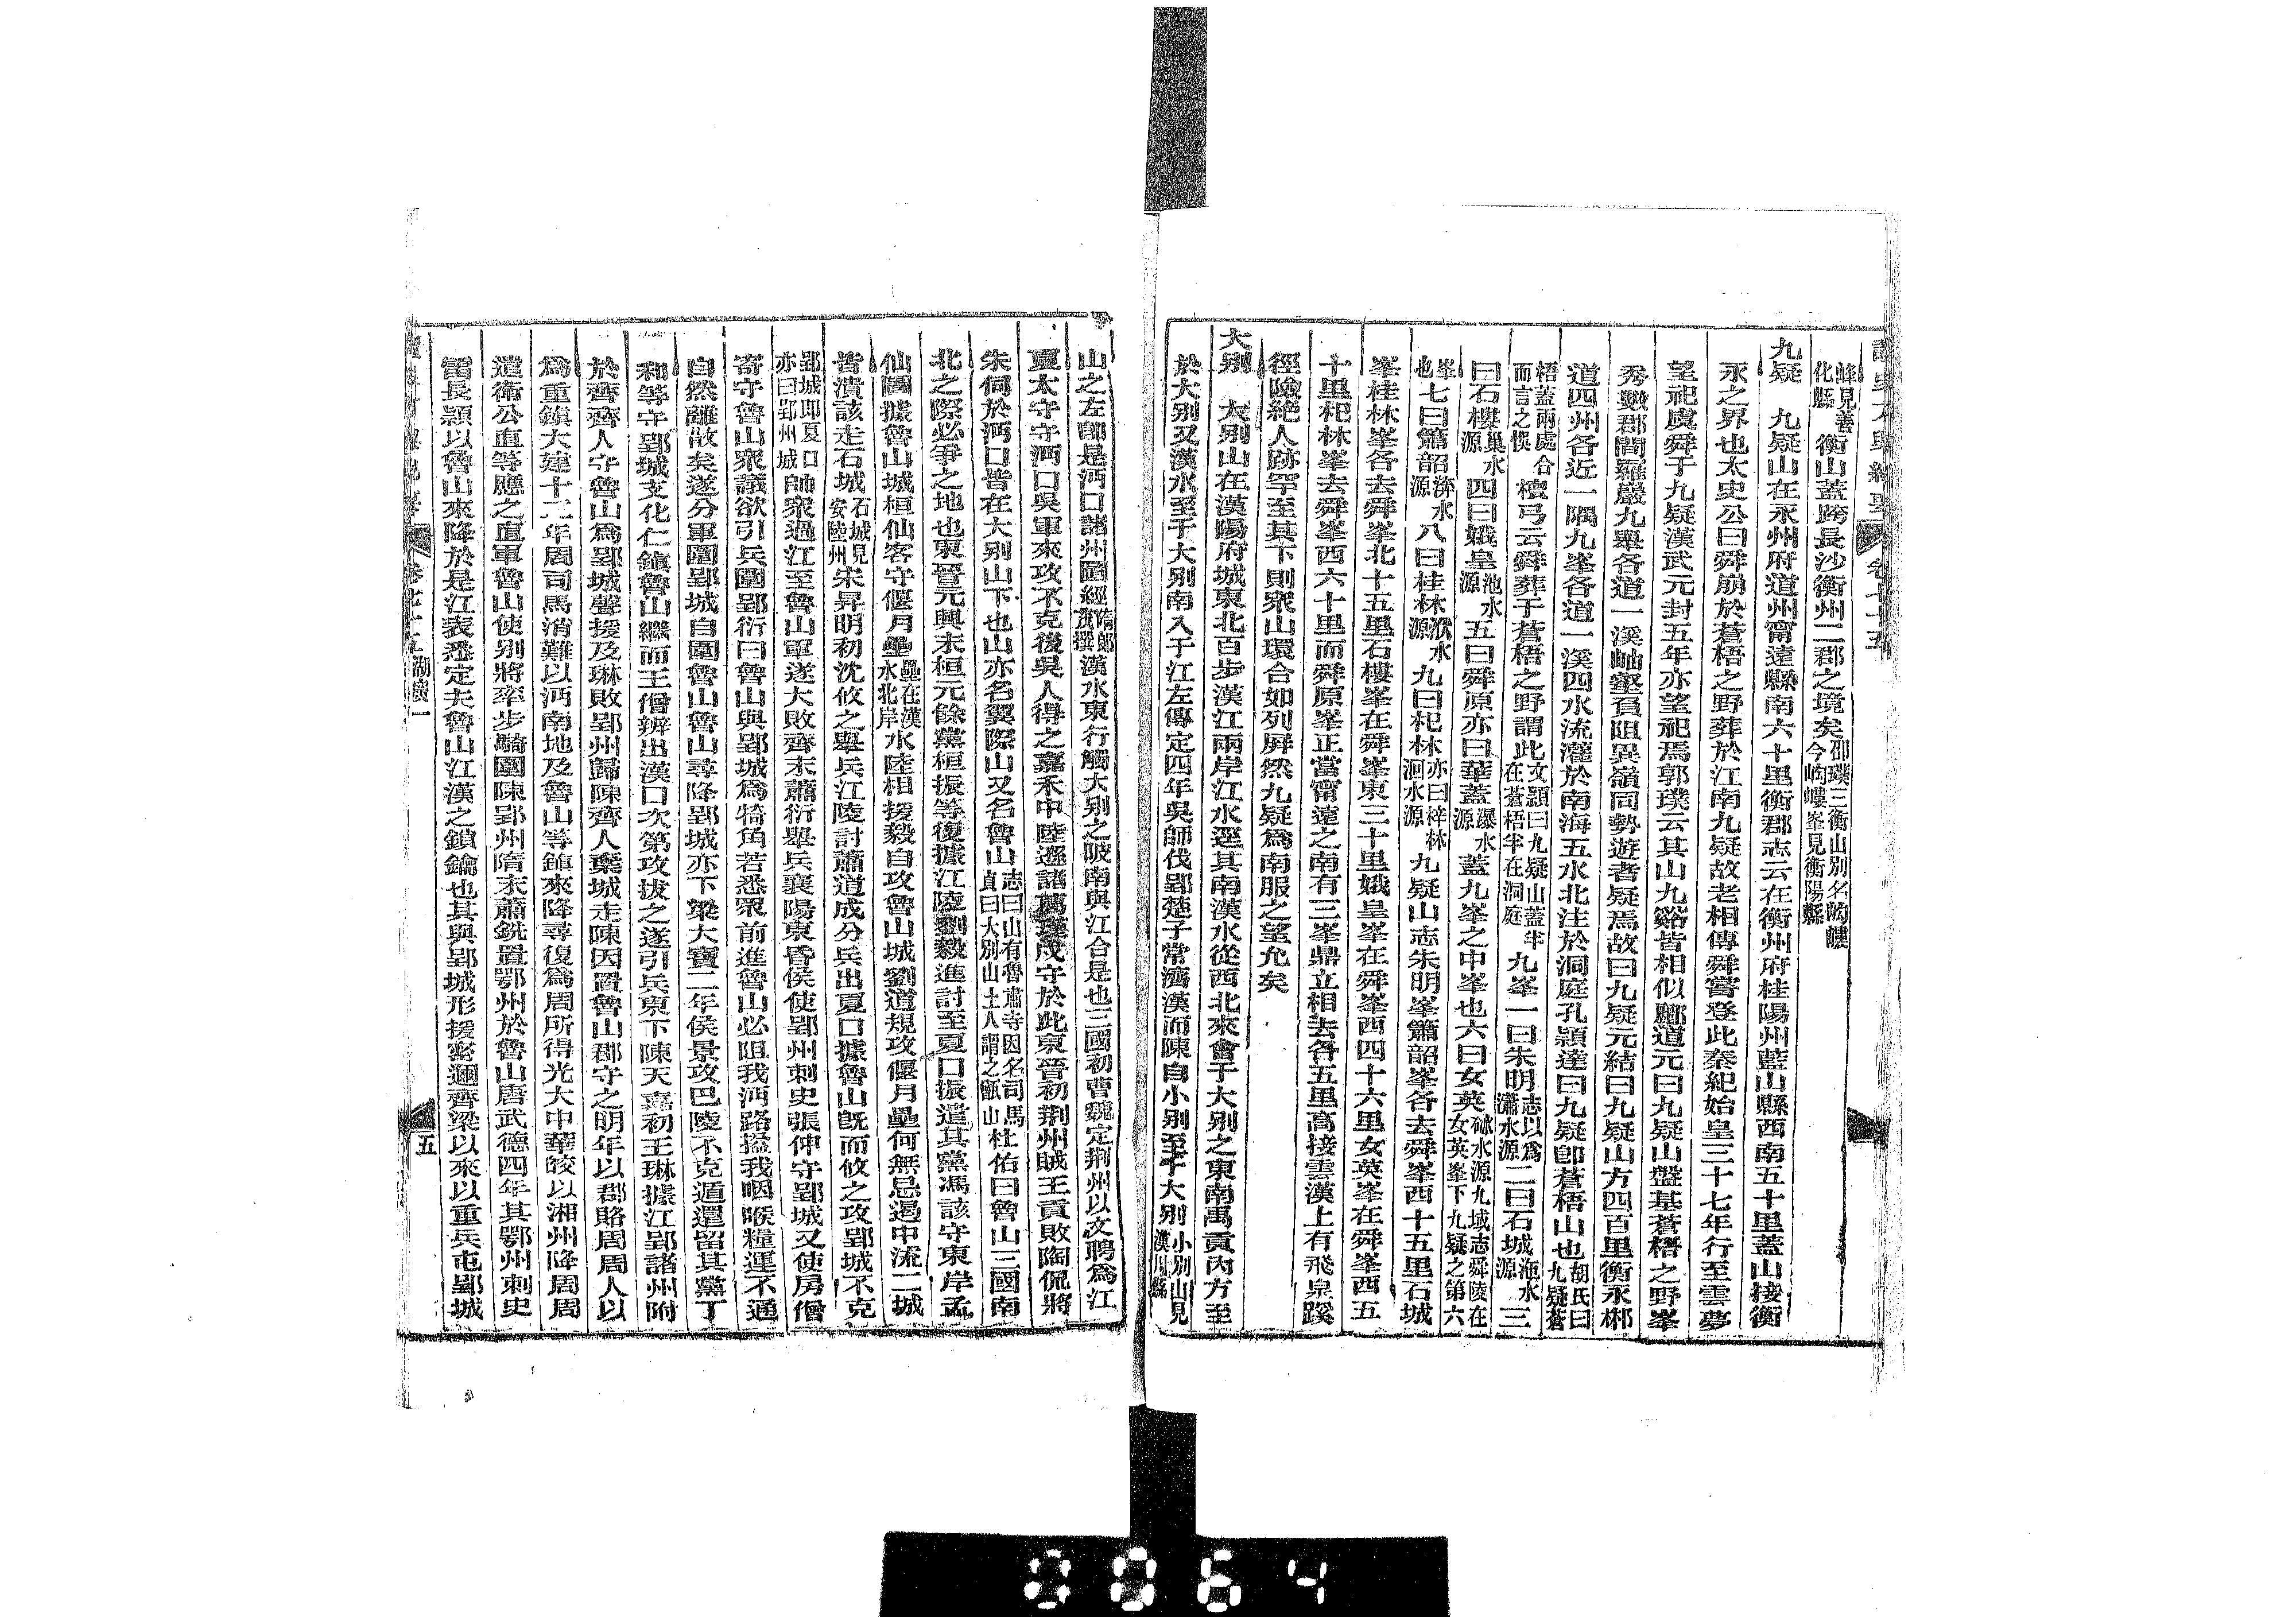 峰見善化縣衡山蓋跨長沙衡州二郡之境矣邵璨云衡山別名岣嶁今岣嶁峯見衡陽縣
九疑 九疑山在永州府道州甯遠縣南六十里衡郡志云在衡州府桂陽州藍山縣西南五十里蓋山接衡
永之界也太史公曰舜崩於蒼梧之野葬於江南九疑故老相傳舜嘗登此秦紀始皇三十七年行至雲夢
望祀虞舜于九疑漢武元封五年亦望祀焉郭璞云其山九谿皆相似酈道元曰九疑山盤基蒼梧之野峯
秀數郡間羅巖九舉各道一溪岫壑負阻異嶺同勢遊者疑焉故曰九疑元結曰九疑山方四百里衡永郴
道四州各近一隅九峯各道一溪四水流灌於南海五水北注於洞庭孔穎達曰九疑卽蒼梧山也胡氏曰九疑蒼
梧蓋兩處合而言之悞檀弓云舜葬于蒼梧之野謂此文穎曰九疑山蓋半在蒼梧半在洞庭九峯一曰朱明志以爲瀟水源二曰石城沲水源三
曰石樓巢水源四曰娥皇池水源五曰舜原亦曰華蓋瀑水源蓋九峯之中峯也六曰女英砅水源九域志舜陵在女英峯下九疑之第六
峯也七曰簫韶漭水源八曰桂林㵽水源九曰杞林亦曰梓林洄水源九疑山志朱明峯簫韶峯各去舜峯西十五里石城
峯桂林峯各去舜峯北十五里石樓峯在舜峯東三十里娥皇峯在舜峯西四十六里女英峯在舜峯西五
十里杞林峯去舜峯西六十里而舜原峯正當甯遠之南有三峯鼎立相去各五里高接雲漢上有飛泉蹊
徑險絕人跡罕至其下則衆山環合如列屏然九疑爲南服之望允矣
大別 大別山在漢陽府城東北百步漢江兩岸江水逕其南漢水從西北來會于大別之東南禹貢內方至
於大別又漢水至于大別南入于江左傳定四年吳師伐郢楚子常濟漢而陳自小別至于大別小別山見漢川縣
山之左卽是沔口諸州圖經隋郎茂撰漢水東行觸大別之陂南與江合是也三國初曹魏定荆州以文聘爲江
夏太守守沔口吳軍來攻不克後吳人得之嘉禾中陸遜諸葛瑾戍守於此東晉初荆州賊王貢敗陶侃將
朱伺於沔口皆在大別山下也山亦名翼際山又名魯山志曰山有魯肅寺因名司馬貞曰大別山土人謂之甑山杜佑曰魯山三國南
北之際必爭之地也東晉元興末桓元餘黨桓振等復據江陵劉毅進討至夏口振遣其黨馮該守東岸孟
仙圖據魯山城桓仙客守偃月壘壘在漢水北岸水陸相援毅自攻魯山城劉道規攻偃月壘何無忌遏中流二城
皆潰該走石城石城見安陸州宋昇明初沈攸之舉兵江陵討蕭道成分兵出夏口據魯山旣而攸之攻郢城不克
郢城即夏口亦曰郢州城帥衆過江至魯山軍遂大敗齊末蕭衍舉兵襄陽東昏侯使郢州刺史張仲守郢城又使房僧
寄守魯山衆議欲引兵圍郢衍曰魯山與郢城爲犄角若悉衆前進魯山必阻我沔路搤我咽喉糧運不通
自然離散矣遂分軍圍郢城自圍魯山魯山尋降郢城亦下梁大寶二年侯景攻巴陵不克遁還留其黨丁
和等守郢城支化仁鎭魯山繼而王僧辨出漢口次第攻拔之遂引兵東下陳天嘉初王琳據江郢諸州附
於齊齊人守魯山爲郢城聲援及琳敗郢州歸陳齊人棄城走陳因置魯山郡守之明年以郡賂周周人以
爲重鎮大建十二年周司馬消難以沔南地及魯山等鎮來降尋復爲周所得光大中華皎以湘州降周周
遣衞公直等應之直軍魯山使別將率步騎圍陳郢州隋末蕭銑置鄂州於魯山唐武德四年其鄂州刺史
雷長潁以魯山來降於是江表悉定夫魯山江漢之鎖鑰也其與郢城形援密邇齊梁以來以重兵屯郢城
五
0064